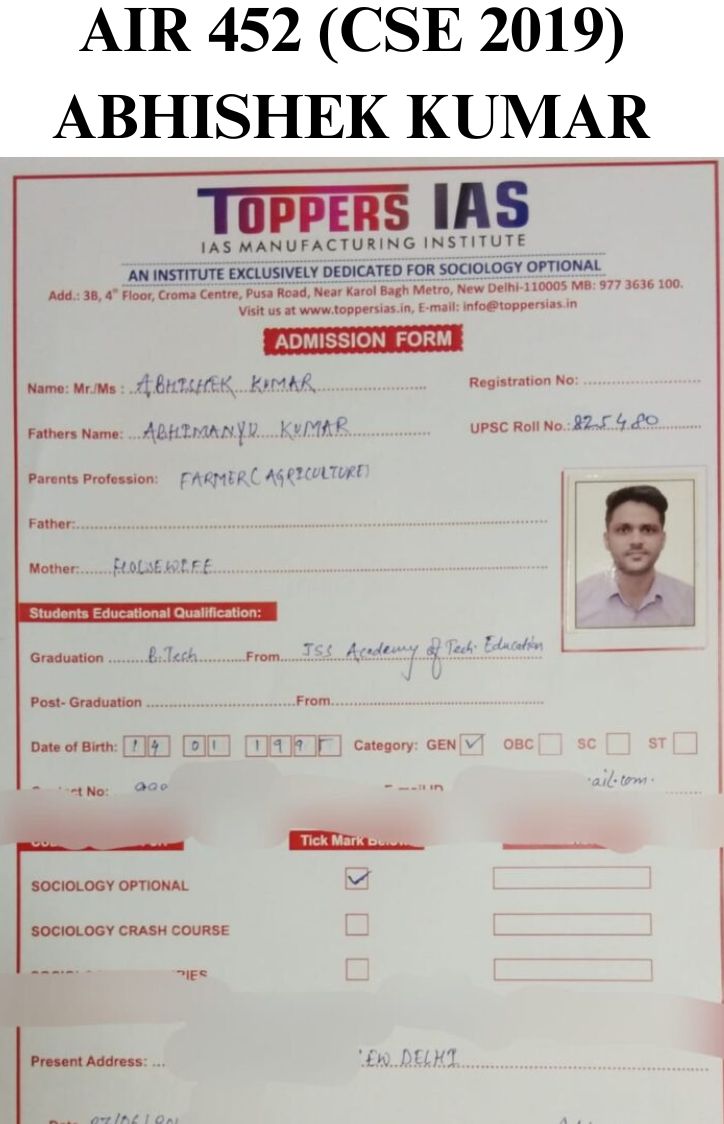 AIR 452 (CSE 2019)
ABHISHEK KUMAR
TOPPERS IAS
IAS MANUFACTURING INSTITUTE
AN INSTITUTE EXCLUSIVELY DEDICATED FOR SOCIOLOGY OPTIONAL
Add.: 3B, 4th Floor, Croma Centre, Pusa Road, Near Karol Bagh Metro, New Delhi-110005 MB: 977 3636 100.
Visit us at www.toppersias.in, E-mail: info@toppersias.in
ADMISSION FORM
Name: Mr./Ms : ABHISHEK KUMAR Registration No:
Fathers Name: ABHIMANYU KUMAR UPSC Roll No.: 825480
Parents Profession: FARMER (AGRICULTURE)
Father:
Mother: HOUSEWIFE
Students Educational Qualification:
Graduation B.Tech From JSS Academy of Tech. Education
Post- Graduation From
Date of Birth: 14 01 1995 Category: GEN ✓ OBC SC ST
No: ail.com.
Tick Mark
SOCIOLOGY OPTIONAL ✓
SOCIOLOGY CRASH COURSE
Present Address: ... EW DELHI